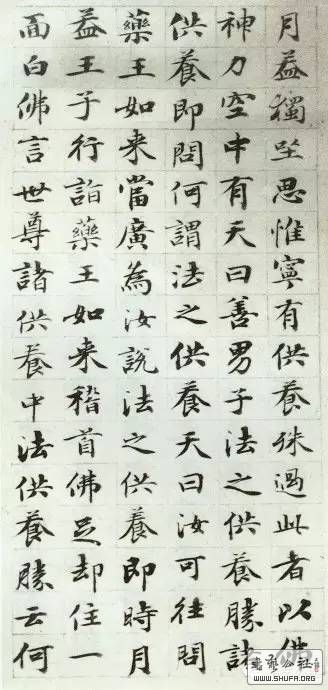 月蓋獨坐思惟寧有供養殊過此者以佛
神力空中有天曰善男子法之供養勝諸
供養即問何謂法之供養天曰汝可往問
藥王如来當廣為汝說法之供養即時月
蓋王子行詣藥王如来稽首佛足却住一
面白佛言世尊諸供養中法供養勝云何
公社
WWW.SHUFA.ORG